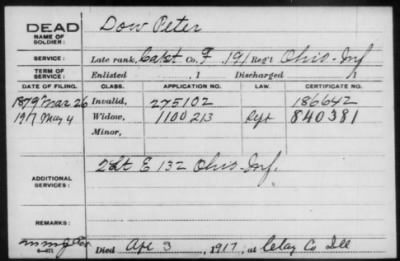 DEAD
NAME OF SOLDIER: Dow Peter
SERVICE: Late rank, Capt Co. F, 191 Reg't Ohio Inf
TERM OF SERVICE: Enlisted , 1 Discharged , 1
DATE OF FILING. CLASS. APPLICATION NO. LAW. CERTIFICATE NO.
1879 Mar 26 Invalid, 275102 186642
1917 May 4 Widow, 1100213 840381
Minor,
ADDITIONAL SERVICES: 2 Lt E 132 Ohio Inf.
REMARKS:
Died Apr 3, 1917, at Clay Co Ill